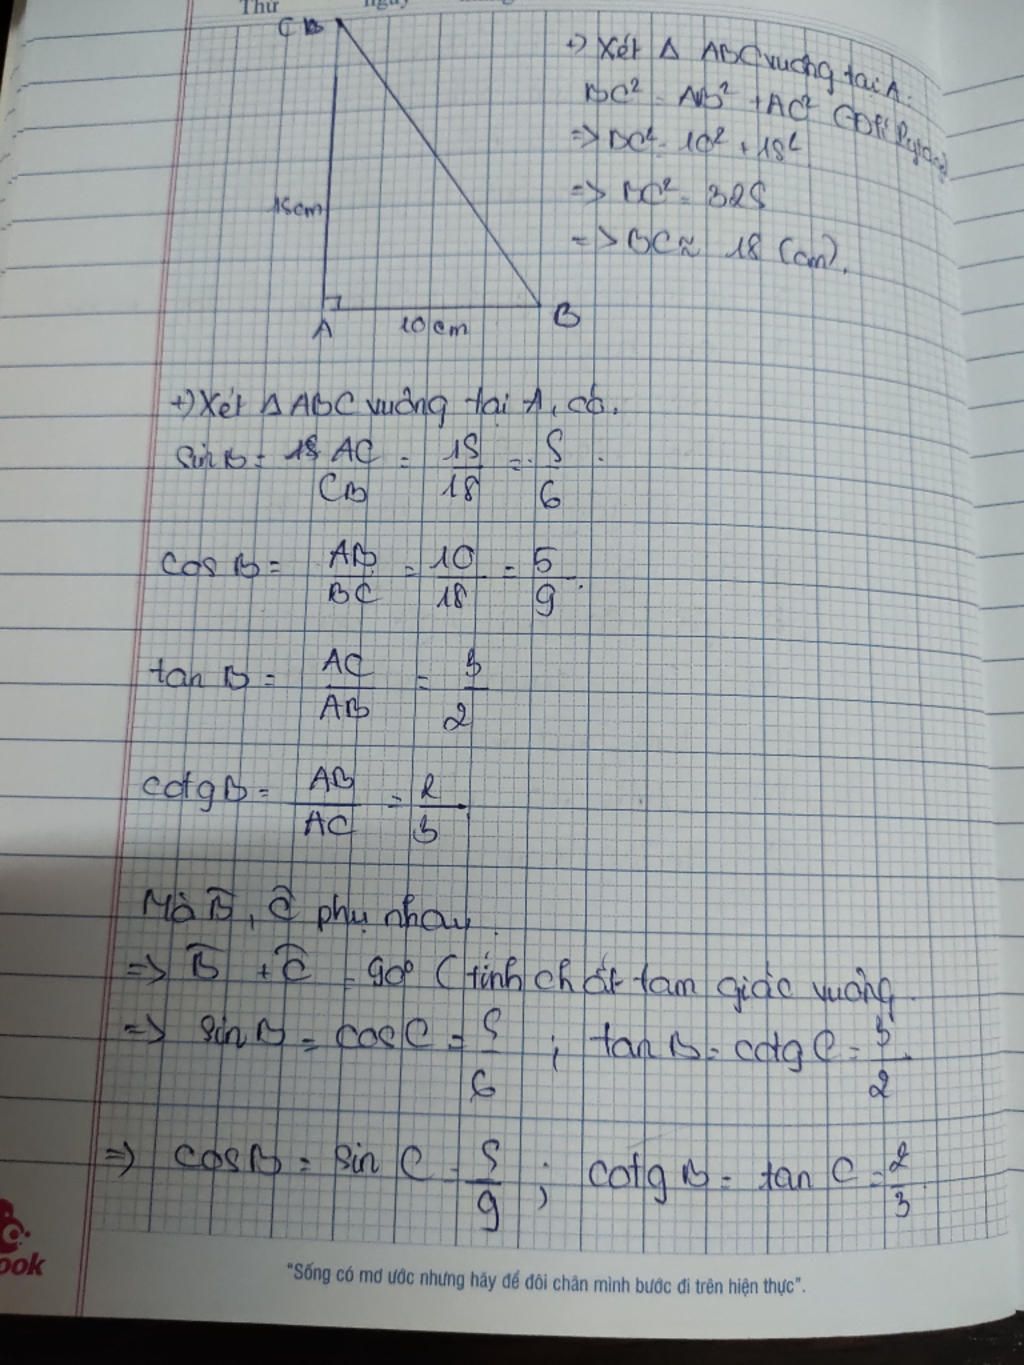 Thứ
ngày
C B
15cm
A
10cm
B
+) Xét Δ ABC vuông tại A.
BC² = AB² + AC² (Đlí Pytago)
=> BC² = 10² + 15²
=> BC² = 325
=> BC ≈ 18 (cm).
+) Xét Δ ABC vuông tại A, có.
sin B = AC/CB = 15/18 = 5/6.
cos B = AB/BC = 10/18 = 5/9.
tan B = AC/AB = 3/2
cotg B = AB/AC = 2/3
Mà B̂, Ĉ phụ nhau.
=> B̂ + Ĉ = 90° (tính chất tam giác vuông
=> sin B = cos C = 5/6 ; tan B = cotg C = 3/2
=> cos B = sin C = 5/9 ; cotg B = tan C = 2/3
ook
"Sống có mơ ước nhưng hãy để đôi chân mình bước đi trên hiện thực".